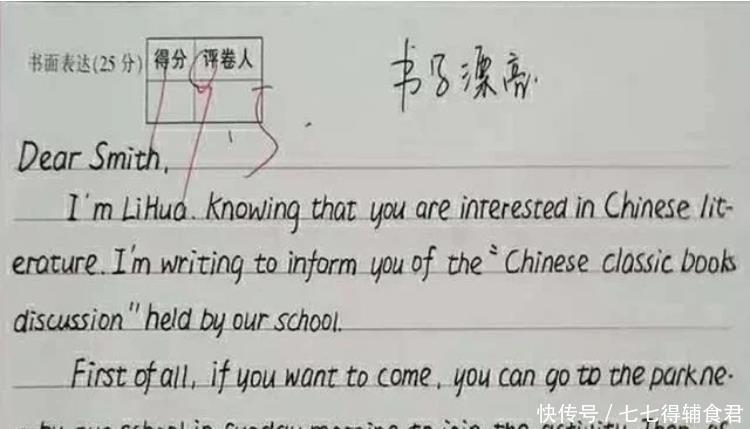 书面表达(25分) 得分 评卷人
书写漂亮.
Dear Smith,
I'm LiHua. Knowing that you are interested in Chinese lit-
erature. I'm writing to inform you of the "Chinese classic books
discussion" held by our school.
First of all, if you want to come, you can go to the park ne-
by our school in Sunday morning to join the activity. Then
快传号/七七得辅食君